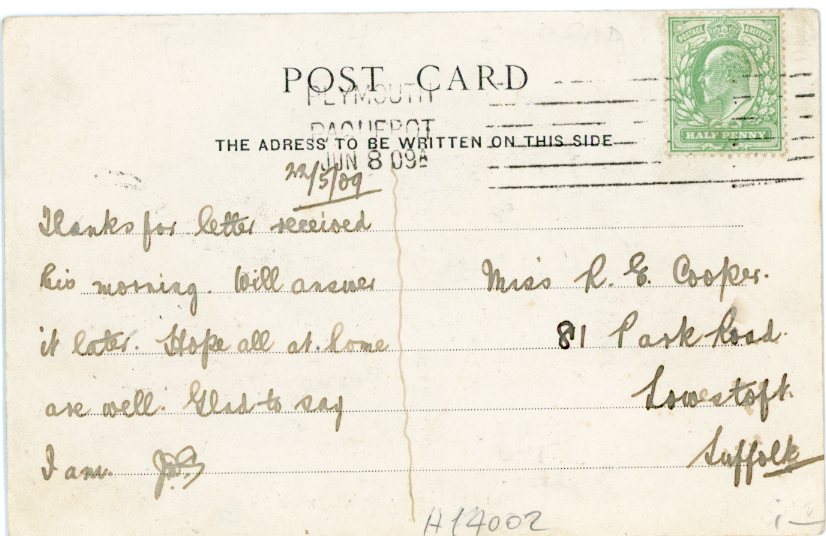 POST CARD
PLYMOUTH
PAQUEBOT
JUN 8 09A
POSTAGE & REVENUE
HALF PENNY
THE ADRESS TO BE WRITTEN ON THIS SIDE
22/5/09
Thanks for letter received
his morning. Will answer
it later. Hope all at home
are well. Glad to say
I am.
Miss R. E. Cooper.
81 Park Road.
Lowestoft.
Suffolk
H14002